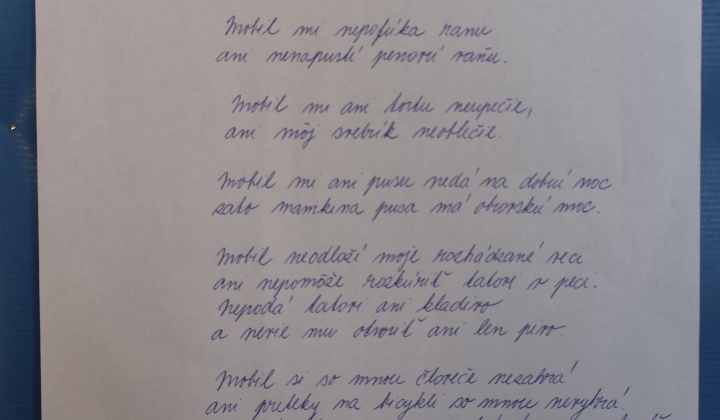 Mobil mi nepofúka ranu
ani nenapustí penovú vaňu.
Mobil mi ani tortu neupečie,
ani môj svetrík neoblečie.
Mobil mi ani pusu nedá na dobrú noc
zato mamkina pusa má obrovskú moc.
Mobil neodloží moje rozhádzané veci
ani nepomôže rozkúriť tatovi v peci.
Nepodá tatovi ani kladivo
a nevie mu otvoriť ani len pivo.
Mobil si so mnou človeče nezahrá
ani preteky na bicykli so mnou nevyhrá!